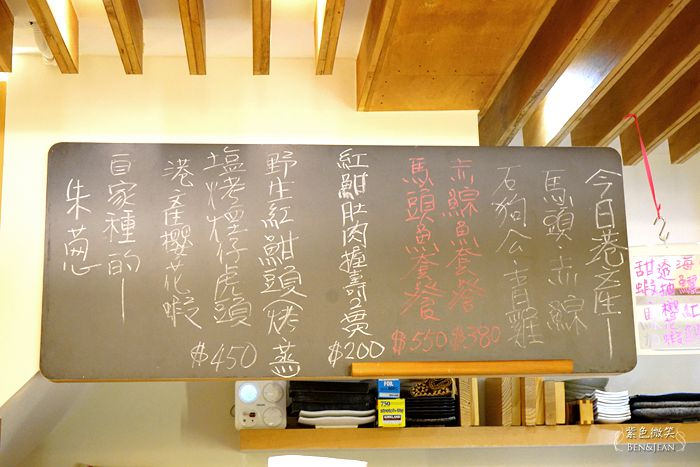 今日巷產—
馬頭赤鯮
石狗公青雞
赤鯮魚套餐$380
馬頭魚套餐$550
紅魽肚肉握壽2貫$200
野生紅魽頭(烤蒸
塩烤煙仔虎頭$450
港產櫻花蝦
自家種的—
朱葱
海
透抽
甜蝦
紅
櫻
FOIL
750
stretch-tite
KIRKLAND
紫色微笑
BEN&JEAN